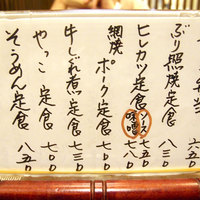 弁当 六五〇
ぶり照焼定食 八〇〇
ヒレカツ定食 ソース 七五〇
味噌 七八〇
網焼ポーク定食 七〇〇
牛しぐれ煮定食 七三〇
やっこ定食 七〇〇
そうめん定食 八五〇